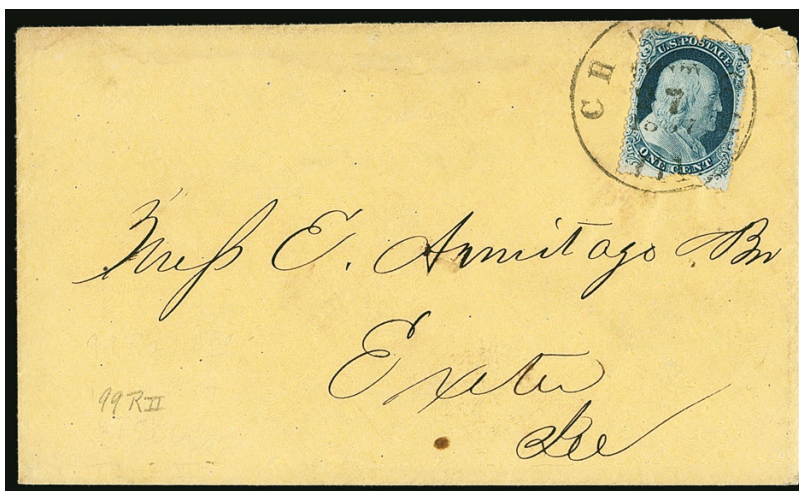 U.S. POSTAGE
7
ONE CENT
Miss E. Armitage
Exeter
Ill
99RII